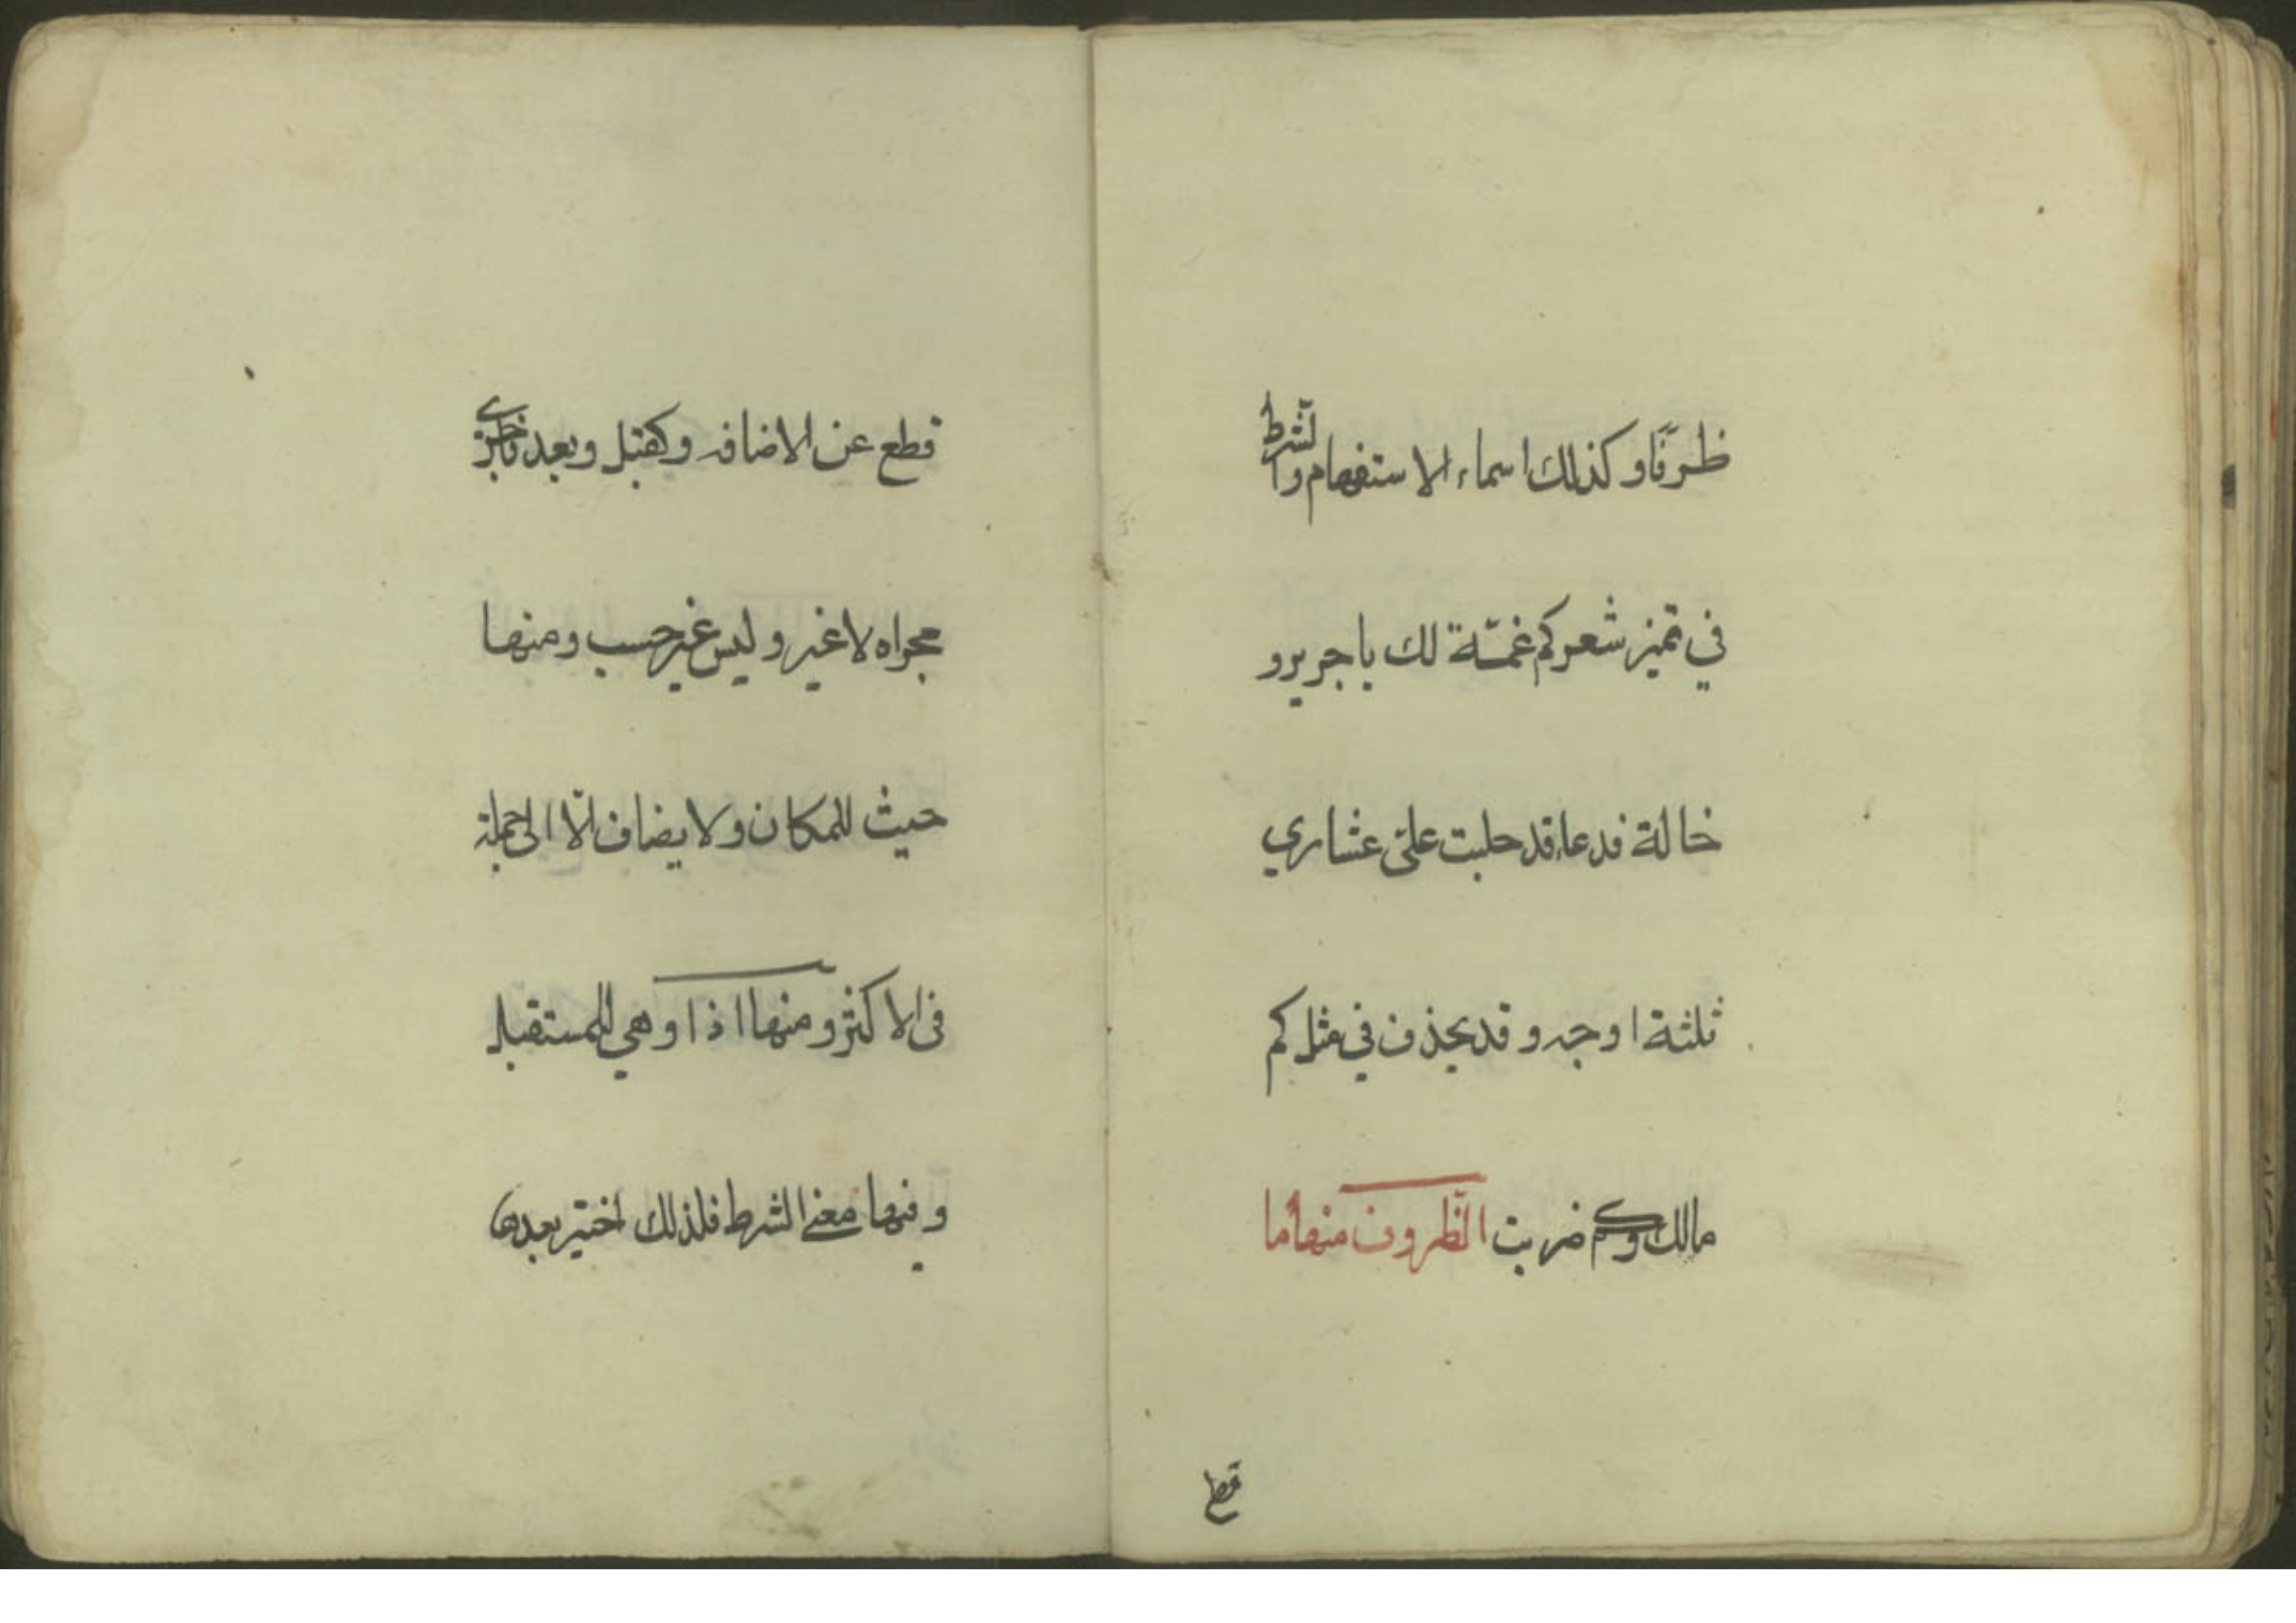 ظرفًا وكذلك اسماء الاستفهام والشرط
في تميز شعر كم عمّة لك يا جرير و
خالة فدعاء قد حلبت علىّ عشاري
ثلثة اوجه وقد يحذف في مثل كم
مالك وكم ضربت الظروف منها ما
قطع
قطع عن الاضافه كقبل وبعد واجرى
مجراه لا غير وليس غير وحسب ومنها
حيث للمكان ولا يضاف الّا الى جملة
فى الاكثر ومنها اذا وهي للمستقبل
وفيها معنى الشرط فلذلك اختير بعدها